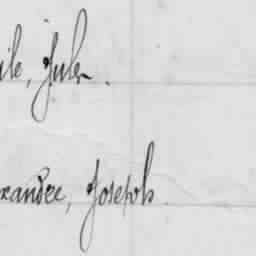 ile, Jules.
xandre, Joseph.